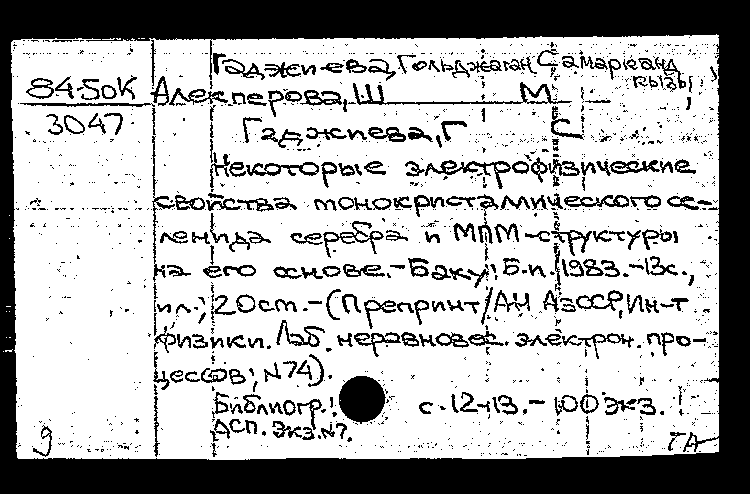 Гаджиева, Гольджаган Самарканд
кызы
84-50К Алекперова, Ш М ,
3047 Гаджиева, Г С
Некоторые электрофизические
свойства монокристаллического се-
ленида серебра и МПМ-структуры
на его основе.-Баку: Б.и., 1983.-13с.,
ил.; 20 см.-(Препринт/АН АзССР, Ин-т
физики. Лаб. неравновес. электрон. про-
цессов; №74).
Библиогр.: с.12-13.-100 экз.
ДСП. Экз.№7.
9 ТА